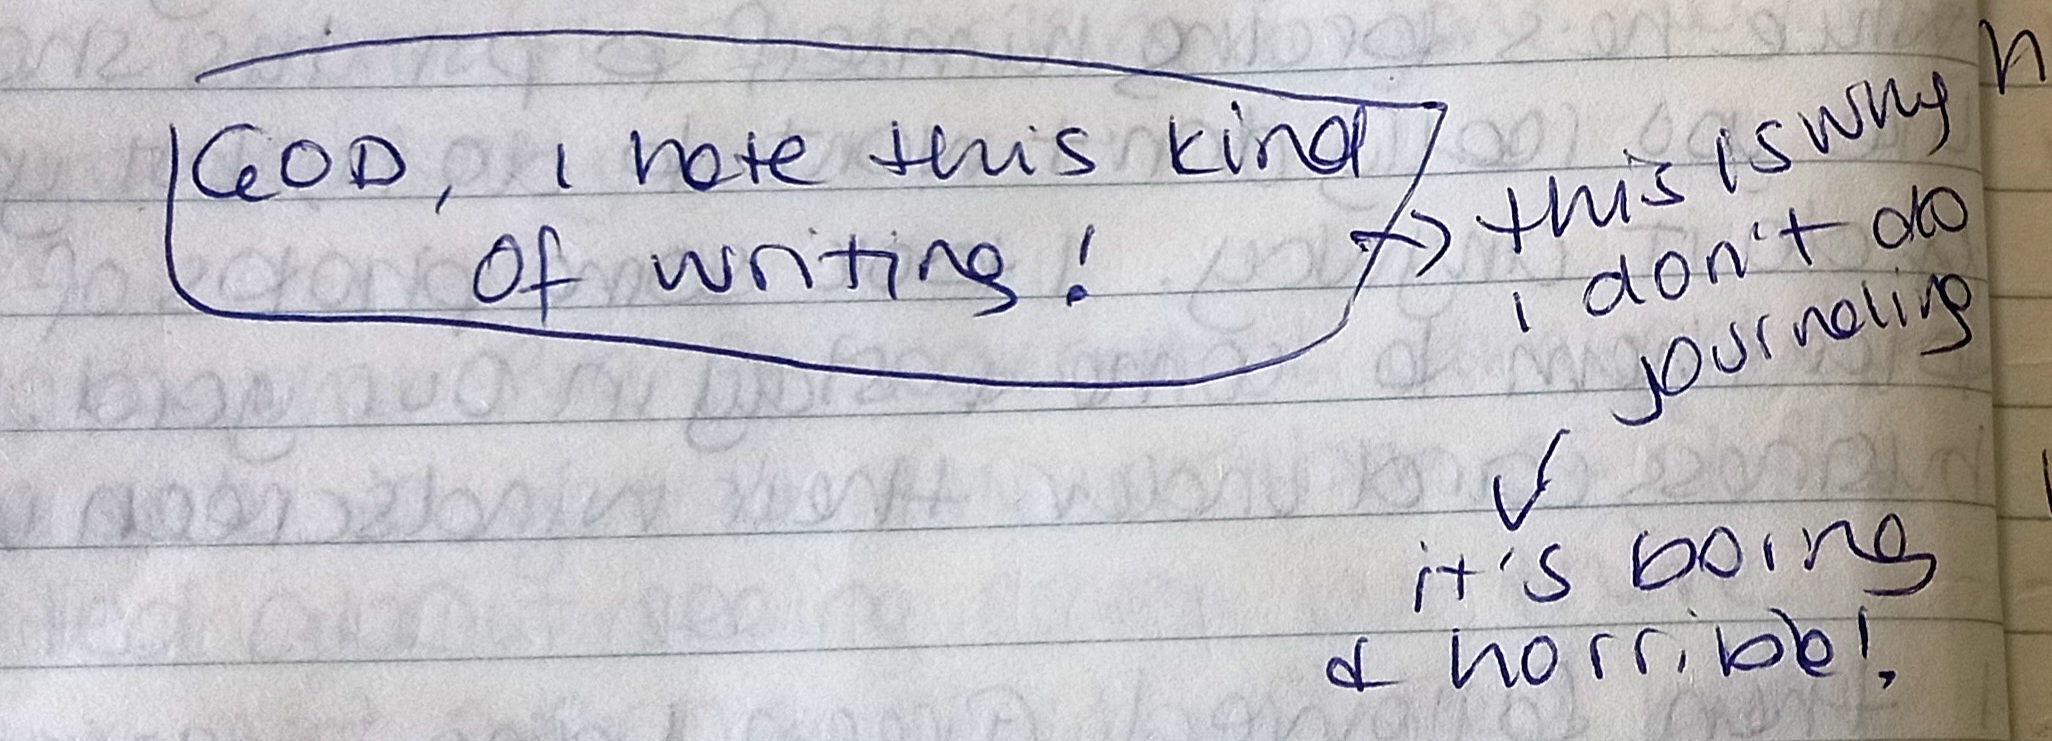 GOD, i hate this kind
of writing!
→ this is why
i don't do
journaling
it's boring
& horrible!